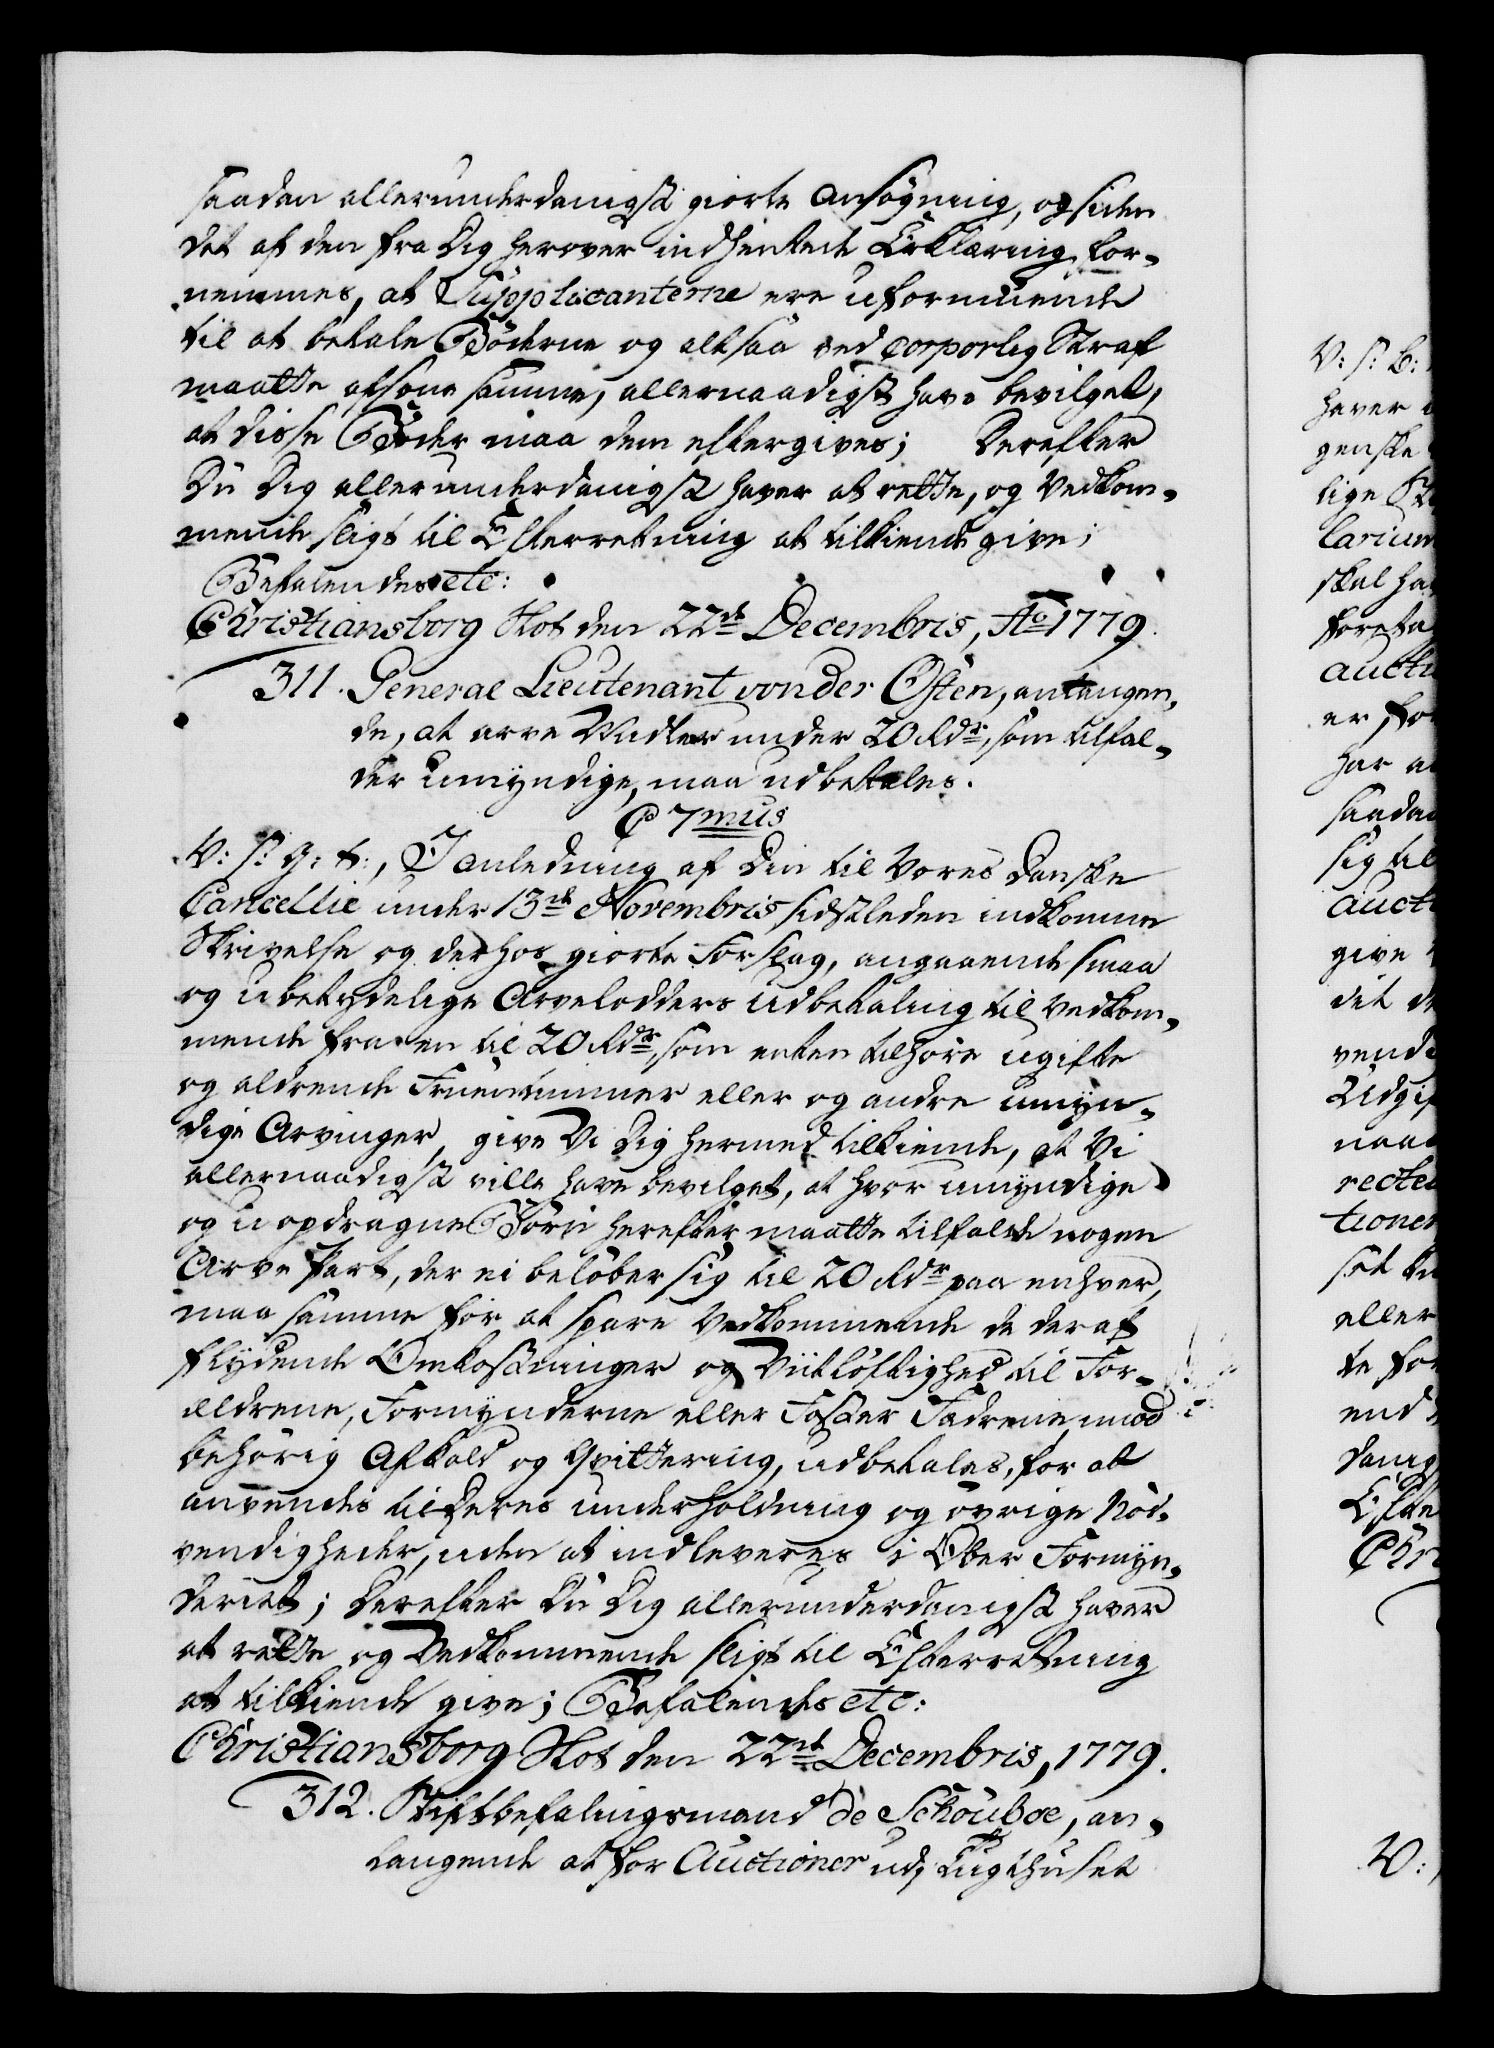 saadan allerunderdanigst giorte Ansøgning, og siden
det af den fra Dig herover indhentede Erklæring for-
nemmes, at Supplicanterne ere uformuende
til at betale Bøderne og altsaa ved corporlig Straf
maatte afsone samme, allernaadigst have bevilget,
at disse Bøder maa dem eftergives; Derefter
Du Dig allerunderdanigst haver at rette, og Vedkom-
mende sligt til Efterretning at tilkiende give;
Befalendes etc:
Christiansborg Slot den 22de Decembris, Ao 1779.
311. General Lieutenant von der Osten, antangen-
de, at arve Midler under 20 Rdr, som tilfal-
der Umyndige, maa udbetales.
C 7mus
V: S: G: T:, I Anledning af Din til Vores Danske
Cancellie under 13de Novembris sidstleden indkomne
Skrivelse og derhos giorte Forslag, angaaende smaa
og ubetydelige Arvelodders Udbetaling til Vedkom-
mende fra en til 20 Rdr, som enten tilhøre ugifte
og aldrende Fruentimmer eller og andre umyn-
dige Arvinger, give Vi Dig hermed tilkiende, at Vi
allernaadigst ville have bevilget, at hvor umyndige
og uopdragne Børn herefter maatte tilfalde nogen
Arve Part, der ei beløber sig til 20 Rdr paa enhver,
maa samme for at spare Vedkommende de deraf
flydende Omkostninger og Viitløftighed til For-
ældrene, Formynderne eller Foster Fædrene, mod
behørig Afkald og Qvittering, udbetales, for at
anvendes til Deres Underholdning og øvrige Nød-
vendigheder, uden at indleveres i Ober Formyn-
deriet; Derefter Du Dig allerunderdanigst haver
at rette og Vedkommende sligt til Efterretning
at tilkiende give; Befalendes etc:
Christiansborg Slot den 22de Decembris, 1779.
312. Stiftbefalingsmand de Schouboe, an-
langende at for Auctioner udi Tugthuset